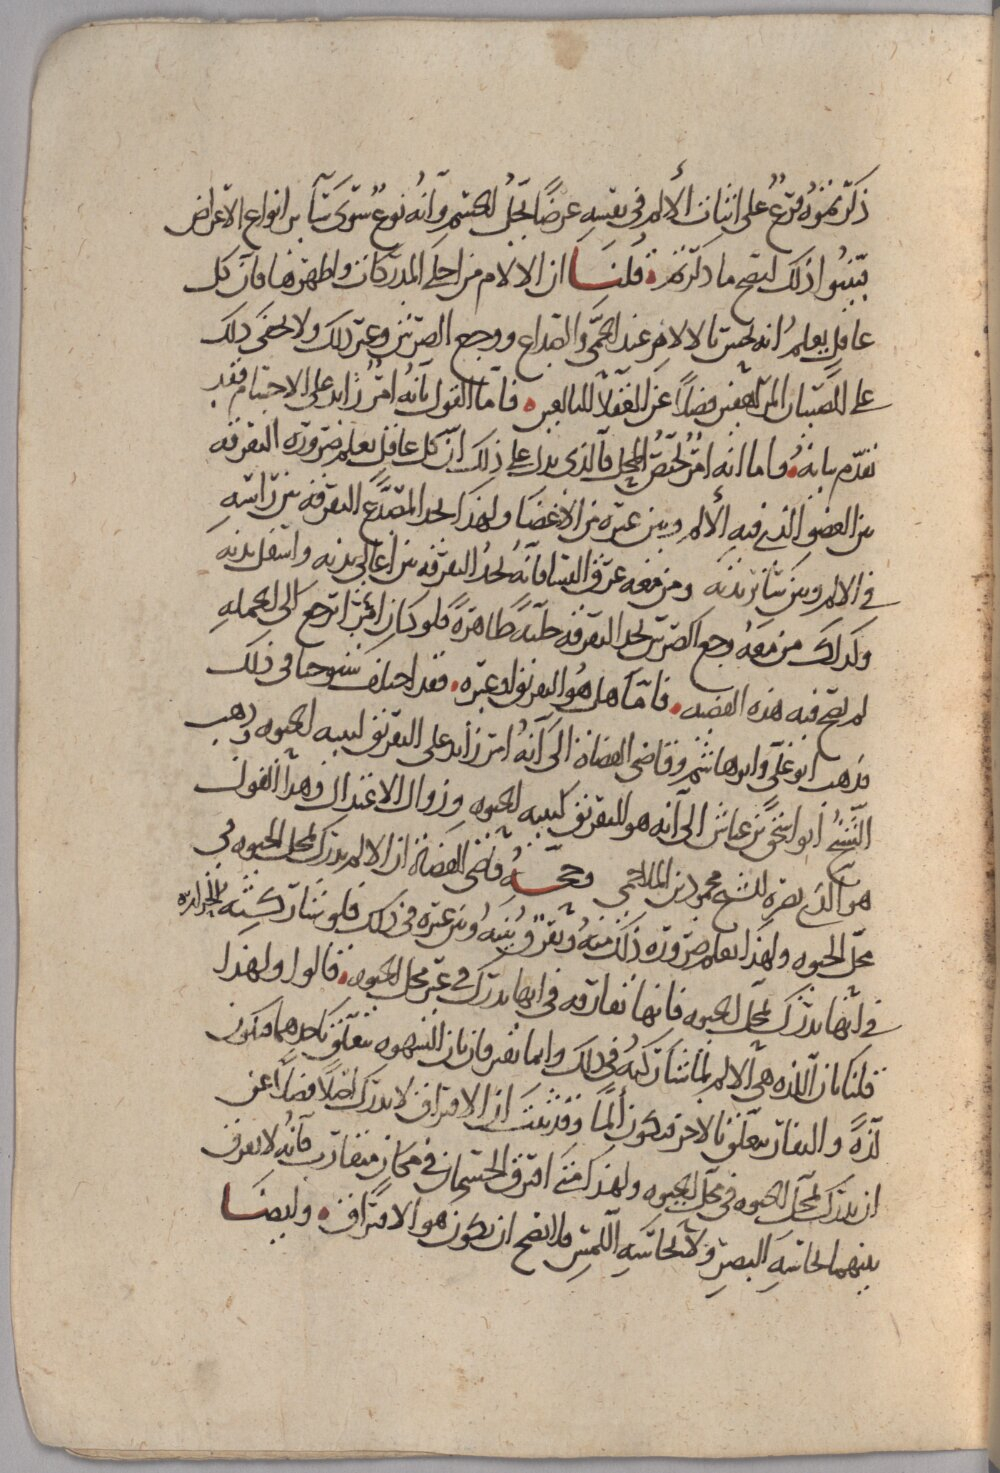 ذكرتموه فرع على اثبات الألم في نفسه عرضا يحل الجسم وانه نوع سوى سائر انواع الاعراض
بينوا ذلك ليصح ما ذكرتم قلنا ان الالام من اجلى المدركات واظهرها فان كل
عاقل يعلم انه يحس بالالام عند الحمى والصداع ووجع الضرس وغير ذلك ولا يخفى ذلك
على الصبيان المراهقين فضلا عن العقلا البالغين فاما القول بانه امر زايد على الاجسام فقد
تقدم بيانه واما انه امر يختص المحل فالذي يدل على ذلك ان كل عاقل يعلم ضرورة التفرقة
بين العضو الذي فيه الألم وبين غيره من الاعضا ولهذا يجد المصدع التفرقة بين راسه
في الالم وبين سائر بدنه ومن معه عرق النسا فانه يجد التفرقة بين اعالي بدنه واسفل بدنه
وكذلك من معه وجع الضرس يجد التفرقة جلية ظاهرة فلو كان امرا يرجع الى الجملة
لم يصح فيه هذه القضية فاما هل هو التفريق او غيره فقد اختلف شيوخنا في ذلك
فذهب ابو علي وابو هاشم وقاضي القضاة الى انه امر زايد على التفريق لبنية الحيوة وذهب
الشيخ ابو اسحق بن عياش الى انه هو التفريق لبنية الحيوة وزوال الاعتدال وهذا القول
هو الذي نصره الشيخ محمود بن الملاحمي وحجة قاضي القضاة ان الالم يدرك بمحل الحيوة في
محل الحيوة ولهذا يعلم ضرورة ذلك منه ويفرق بينه وبين غيره في ذلك فلو شاركته الحرارة
في انها تدرك بمحل الحيوة فانها تفارقه في انها تدرك في غير محل الحيوة قالوا ولهذا
قلنا بان اللذة هي الالم لما شاركته في ذلك وانما يفترقان بان الشهوة تتعلق باحدهما فيكون
لذة والنفار يتعلق بالاخر فيكون ألما وقد ثبت ان الافتراق لا يدرك اصلا فضلا عن
ان يدرك بمحل الحيوة في محل الحيوة ولهذا متى افترق الجسمان في مكان متقارب فانه لا يفرق
بينهما بحاسة البصر ولا بحاسة اللمس فلا يصح ان يكون هو الافتراق وايضا